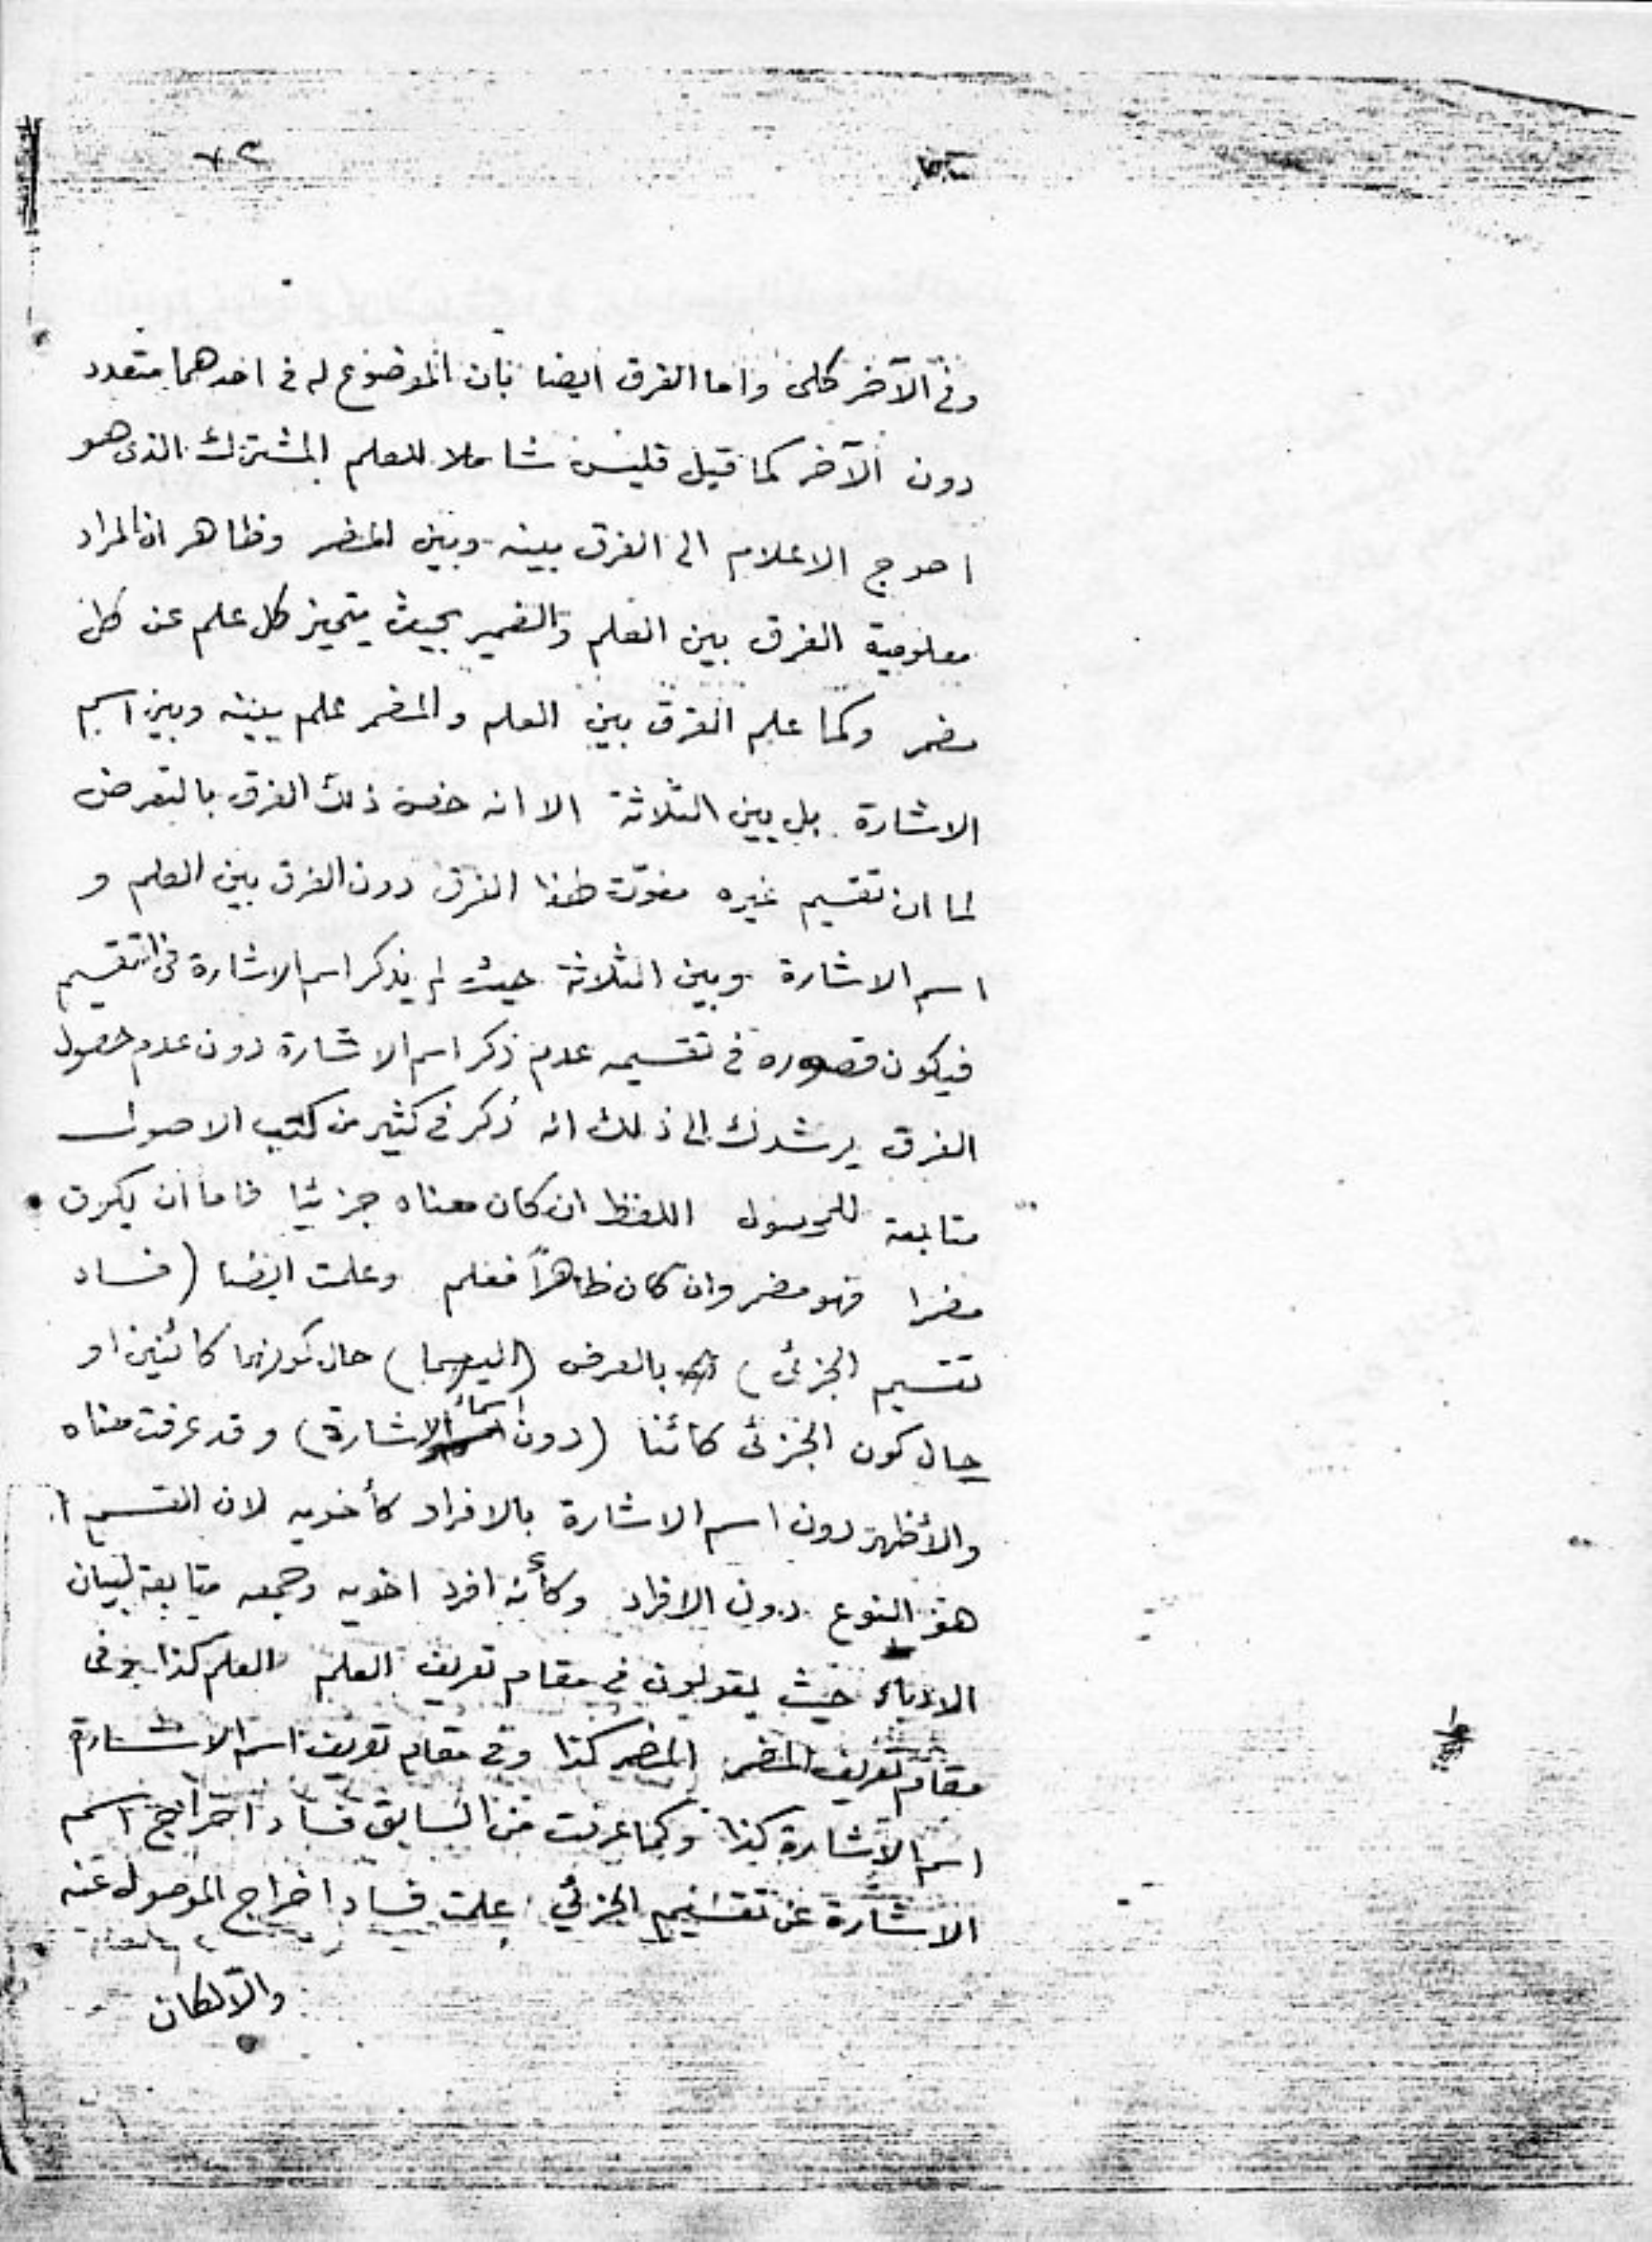 ٧٢
وفى الآخر كلى واما الفرق ايضا بان الموضوع له فى احدهما متعدد
دون الآخر كما قيل فليس شاملا للعلم المشترك الذى هو
احوج الاعلام الى الفرق بينه وبين المضمر وظاهر ان المراد
معلومية الفرق بين العلم والضمير بحيث يتميز كل علم عن كل
مضمر وكما علم الفرق بين العلم والمضمر علم بينه وبين اسم
الاشارة بل بين الثلاثة الا انه خص ذلك الفرق بالتعرض
لما ان تقسيم غيره مفوّت لهذا الفرق دون الفرق بين العلم و
اسم الاشارة وبين الثلاثة حيث لم يذكر اسم الاشارة فى التقسيم
فيكون قصوره فى تقسيمه عدم ذكر اسم الاشارة دون عدم حصول
الفرق يرشدك الى ذلك انه ذكر فى كثير من كتب الاصول
متابعة اللفظ ان كان معناه جزئيا فاما ان يكون
مضمرا فهو مضمر وان كان ظاهراً فعلم وعلمت ايضا (فساد
تقسيم الجزئى) بالعرض (اليهما) حال كونهما كائنين او
حال كون الجزئى كائنا (دون اسماء الاشارة) وقد عرفت معناه
والأظهر دون اسم الاشارة بالافراد كأخويه لان القسيم
هو النوع دون الافراد وكأنه افرد اخويه وجمعه متابعة لبيان
الادباء حيث يقولون فى مقام تعريف العلم العلم كذا وفى
مقام تعريف المضمر المضمر كذا وفى مقام تعريف اسم الاشارة
اسم الاشارة كذا وكما عرفت من السابق فساد اخراج اسم
الاشارة عن تقسيم الجزئي علمت فساد اخراج الموصول عنه
والّا لكان